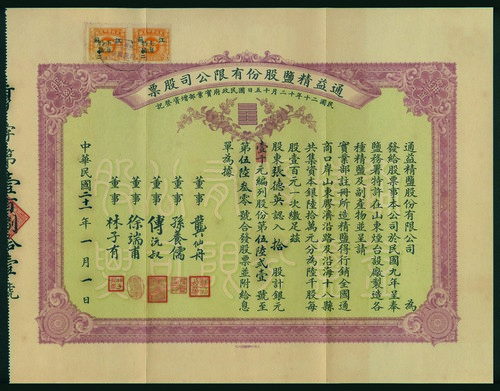 通益精鹽股份有限公司股票
民國二十年十二月十五日國民政府實業部增資登記
通益精鹽股份有限公司 為
發給股票事本公司於民國九年呈奉
鹽務署特許在山東烟台設廠製造各
種精鹽及副產物並呈請
實業部註冊所造精鹽得行銷全國通
商口岸山東膠濟沿路及沿海十八縣
共集資本銀陸拾萬元分為陸千股每
股壹百元一次繳足茲
股東張德英認入拾股計銀元
壹千元編列股份第伍陸弍壹號至
第伍陸叁零號合發股票並附給息
單為據
董事 龔仙舟
董事 孫養儒
董事 傅沅叔
董事 徐瑞甫
董事 林子有
中華民國二十一年一月一日